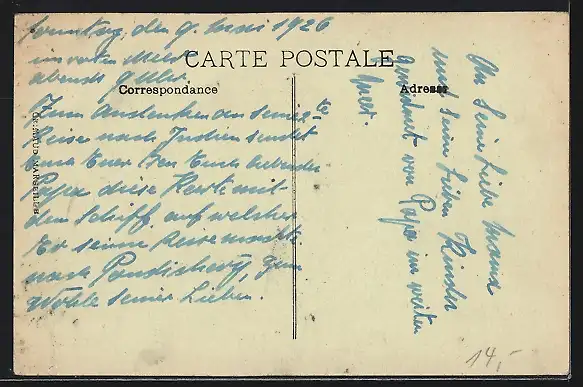 Sonntag, den 9. Mai 1926
abends 9 Uhr.
CARTE POSTALE
Correspondance
Adresse
Zum Andenken an seine
Reise nach Indien sendet
Euer Euch liebender
Papa diese Karte mit
dem Schiff, auf welcher
Er seine Reise macht
nach Pondichery, zum
Wohle seiner Lieben.
An seine liebe Mama
und seine lieben Kinder
gewidmet von Papa im weiten
Meer.
14,-